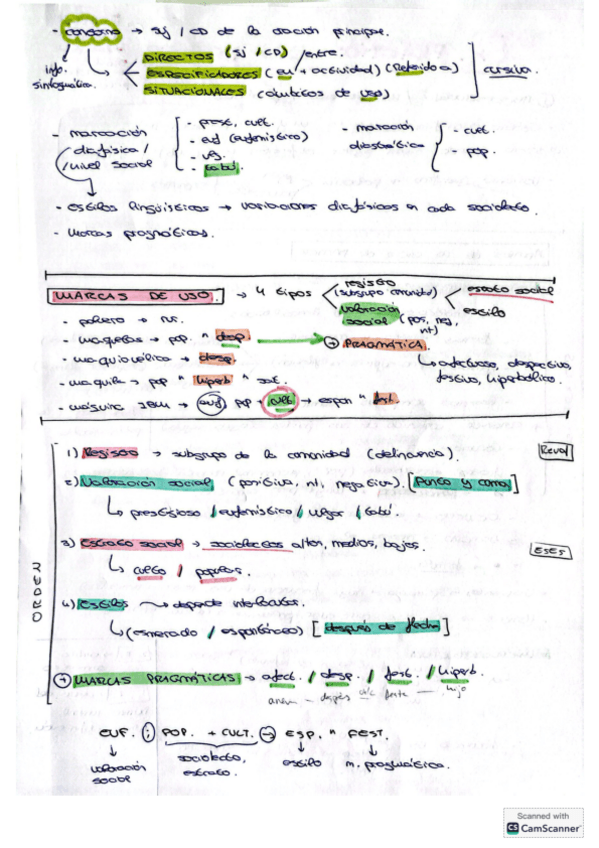 - contorno → sj / CD de la oración principal.
info. sintagmática.
DIRECTOS (sj / CD) /entre.
ESPECIFICADORES (en + actividad) (Referido a)
SITUACIONALES (ámbitos de uso)
cursiva.
- marcación diafásica / nivel social
- prest, cult.
- euf (eufemístico)
- vg.
- tabú.
- marcación diastrática
- cult.
- pop.
- estilos lingüísticos → variaciones diafásicas en cada sociolecto.
- Marcas pragmáticas.
MARCAS DE USO. → 4 tipos
registro (subgrupo comunidad)
valoración social (pos, neg, nt)
estrato social
estilo
+ PRAGMÁTICA.
↳ afectuoso, despectivo, festivo, hiperbólico.
- → pop " desp.
- → desp.
- → pop " hiperb "
- euf pop cult → espon " fest.
ORDEN
1) Registro → subgrupo de la comunidad (delincuencia).
Reval
2) Valoración social (positiva, nt, negativa). [Punto y coma]
↳ prestigioso / eufemístico / vulgar / tabú.
3) Estrato social → sociolectos altos, medios, bajos.
ESES
↳ culto / popular.
4) Estilos → depende interlocutor.
↳ (esmerado / espontáneo) [después de flecha]
+ MARCAS PRAGMÁTICAS → afect. / desp. / fest. / hiperb.
EUF. ; POP. + CULT. → ESP. " FEST.
valoración social
sociolecto, estrato.
estilo
m. pragmática.
Scanned with
CS CamScanner